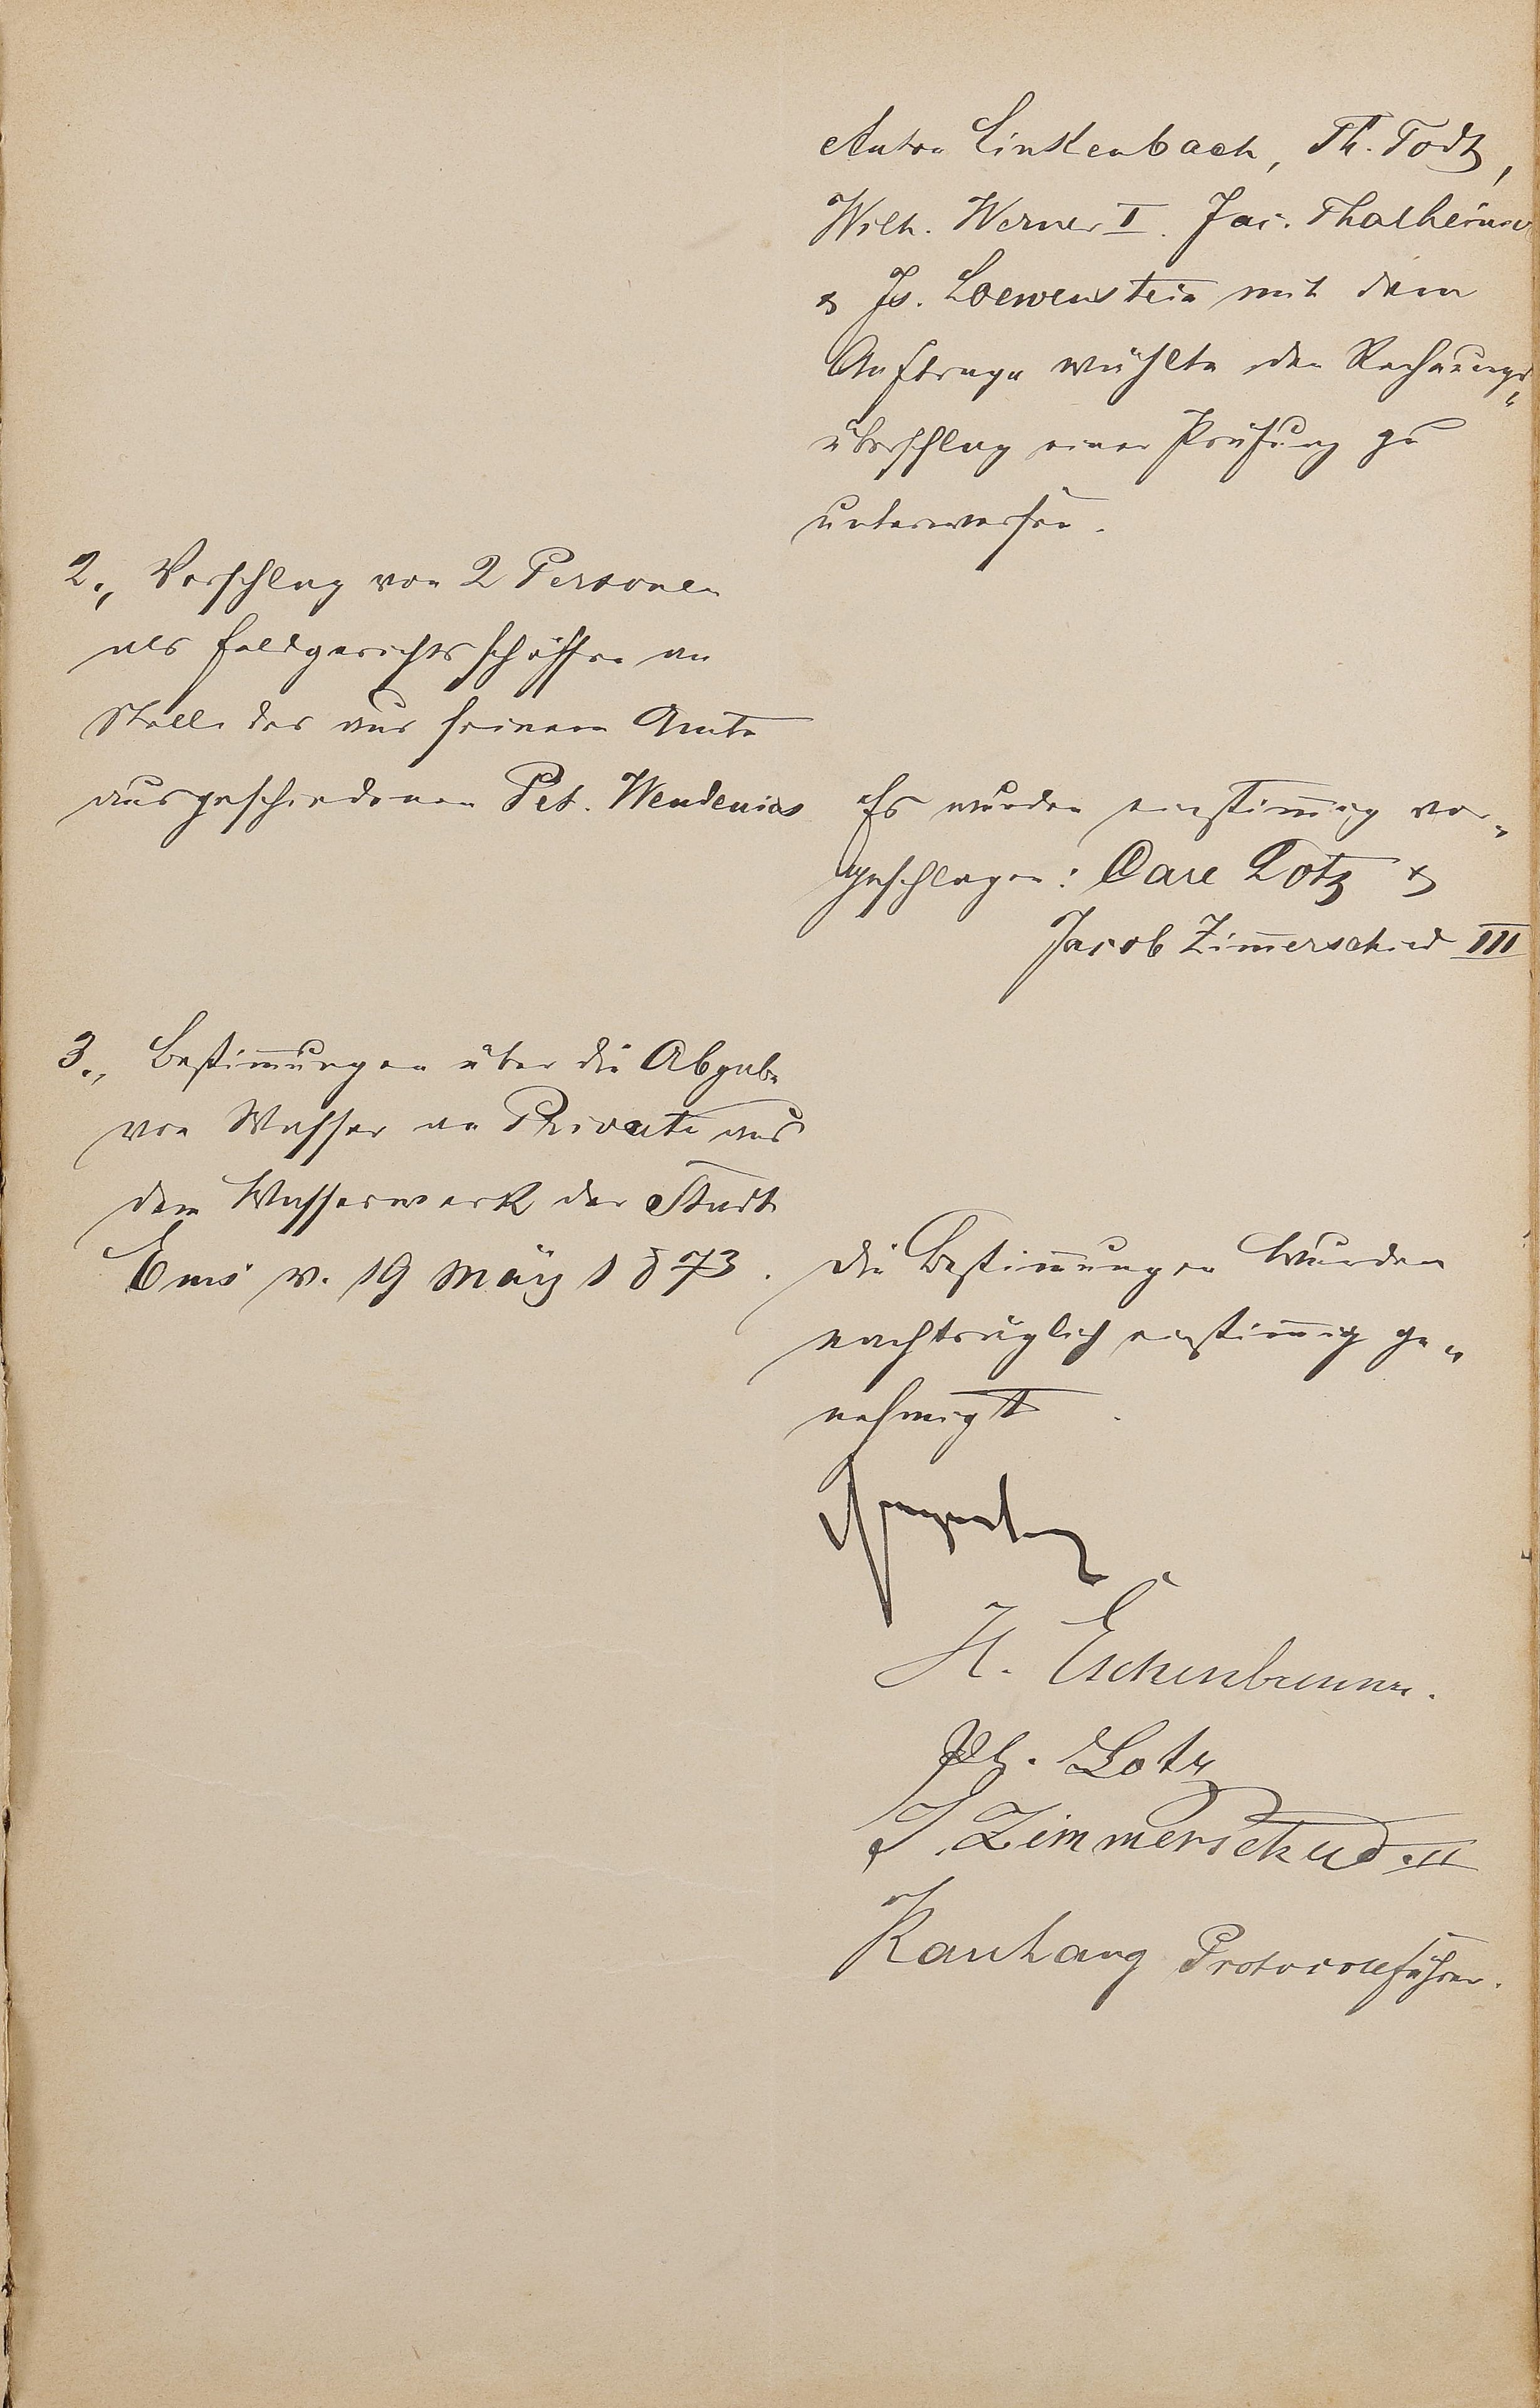 Anton Linkenbach, Th. Todt,
Wilh. Werner I. Jac. Thalheimer
& Is. Loewenstein mit dem
Auftrage wählte den Rechnungs„
überschlag einer Prüfung zu
unterwerfen.
2., Vorschlag von 2 Personen
als Feldgerichtsschöffen an
Stelle des aus seinem Amte
ausgeschiedenen Pet. Wendenius
Es wurden einstimmig vor„
geschlagen: Carl Lotz &
Jacob Zim̅erschied III
3., Bestim̅ungen über die Abgabe
von Wasser an Private aus
dem Wasserwerk der Stadt
Ems v. 19 März 1873.
Die Bestim̅ungen wurden
nachträglich einstim̅ig ge„
nehmigt.
H. Eschenbrenner.
Ph. Lotz
J Zimmerschied II
Kauhang Protocollführer.